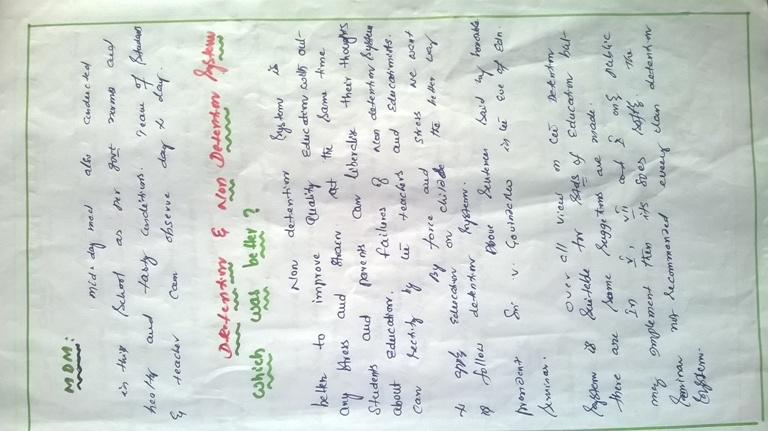 MDM:
mid-day meal also conducted
in this School as per govt norms and
healty and tasty conditions. Team of Student
& teacher can observe day to day.
Detention & Non Detention System
which was better?
Non detention System is
better to improve Quality Education with out-
any stress and strain at the same time
Students and parents can liberalise their thoughts
about Education. Failures of Non detention System
can rectify by the teachers and Educationists.
By force and stress we want
to apply Education on childs the better way
is follow detention System.
Above Sentence Said by honable
President Sri. V. Govindarao is the eve of Edn.
Seminar.
Over all view on the Detention
System is Suitable for Sorts of Education but-
there are Some Suggetions are made.
In V, VII and X only public
may implement then its goes Softly. The
Seminar not recommended every class detention
System.